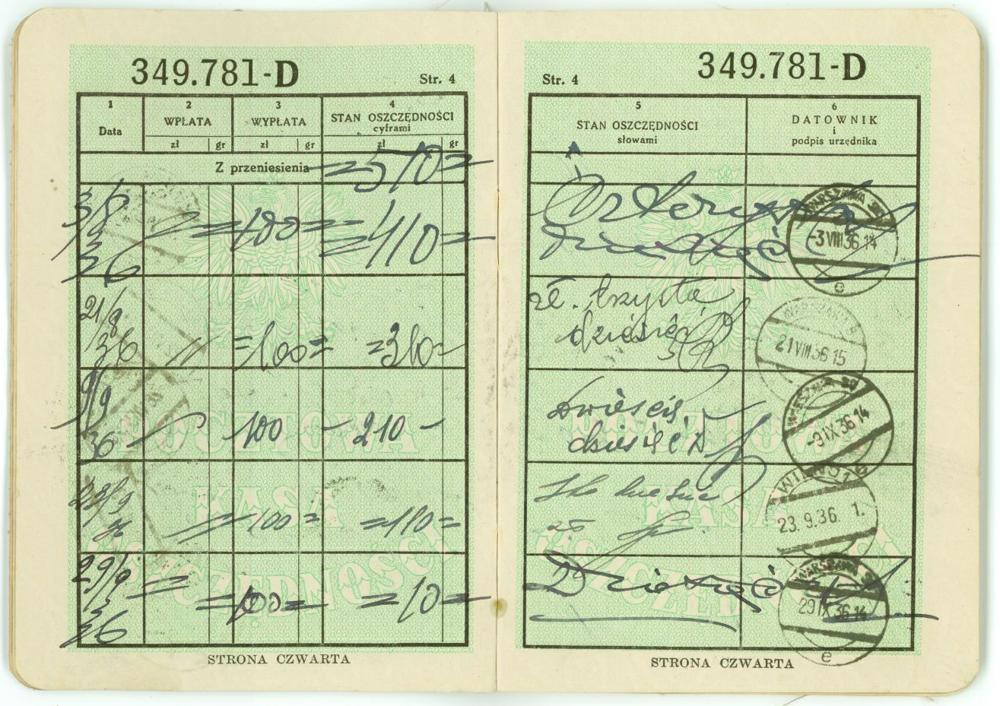 349.781-D
Str. 4
1
Data
2
WPŁATA
zł gr
3
WYPŁATA
zł gr
4
STAN OSZCZĘDNOŚCI
cyframi
zł gr
Z przeniesienia =510=
3/8 36 = =100= =410=
21/8 36 =100= =310=
9/9 36 100 - 210 -
23/9 36 =100= =110=
29/9 36 = =100= =10=
POCZTOWA
KASA
OSZCZĘDNOŚCI
STRONA CZWARTA
Str. 4
349.781-D
5
STAN OSZCZĘDNOŚCI
słowami
6
DATOWNIK
i
podpis urzędnika
Czterysta
dziesięć
WARSZAWA
-3 VIII 36 14
e
zł. trzysta
dziesięć
WARSZAWA
21 VIII 36 15
dwieście
dziesięć zł
WARSZAWA
-9 IX 36 14
e
Sto
zł.
WILNO 1
23. 9. 36. 1.
Dziesięć zł
WARSZAWA
29 IX 36 14
e
POCZTOWA
KASA
OSZCZĘDNOŚCI
STRONA CZWARTA